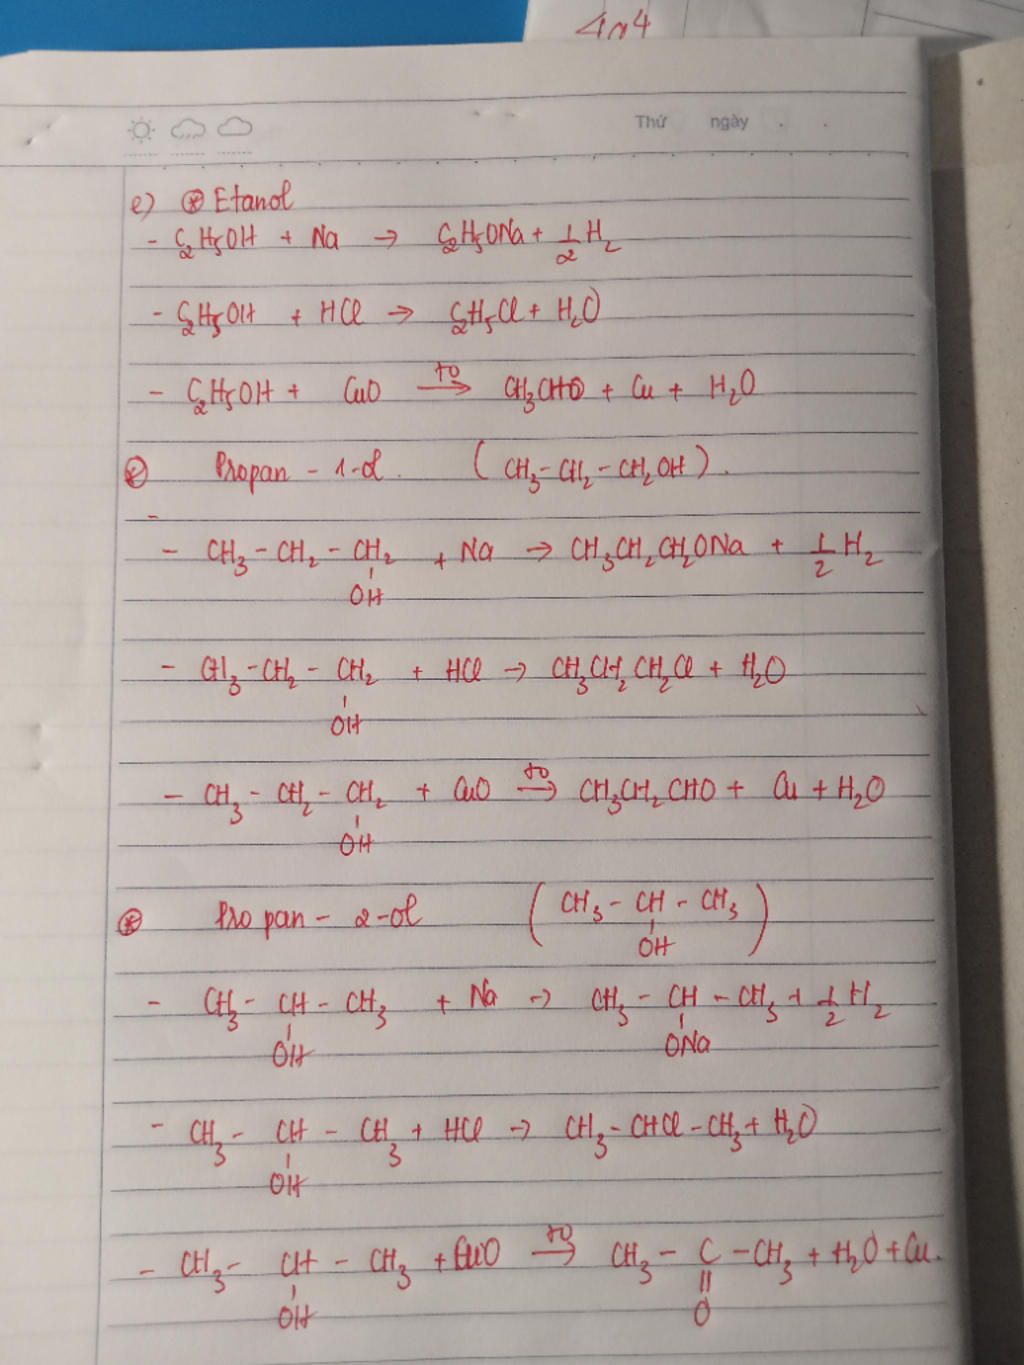 4n4
Thứ ngày
e) ⊛ Etanol
- C2H5OH + Na → C2H5ONa + 1/2 H2
- C2H5OH + HCl → C2H5Cl + H2O
- C2H5OH + CuO t0→ CH3CHO + Cu + H2O
⊛ Propan - 1-ol. (CH3-CH2-CH2OH).
-
- CH3 - CH2 - CH2 + Na → CH3CH2CH2ONa + 1/2 H2
OH
- CH3-CH2 - CH2 + HCl → CH3CH2CH2Cl + H2O
OH
- CH3 - CH2 - CH2 + CuO t0→ CH3CH2CHO + Cu + H2O
OH
⊛ Propan - 2-ol (CH3 - CH - CH3)
OH
- CH3 - CH - CH3 + Na → CH3 - CH - CH3 + 1/2 H2
OH ONa
- CH3 - CH - CH3 + HCl → CH3 - CHCl - CH3 + H2O
OH
- CH3 - CH - CH3 + CuO t0→ CH3 - C - CH3 + H2O + Cu.
OH O